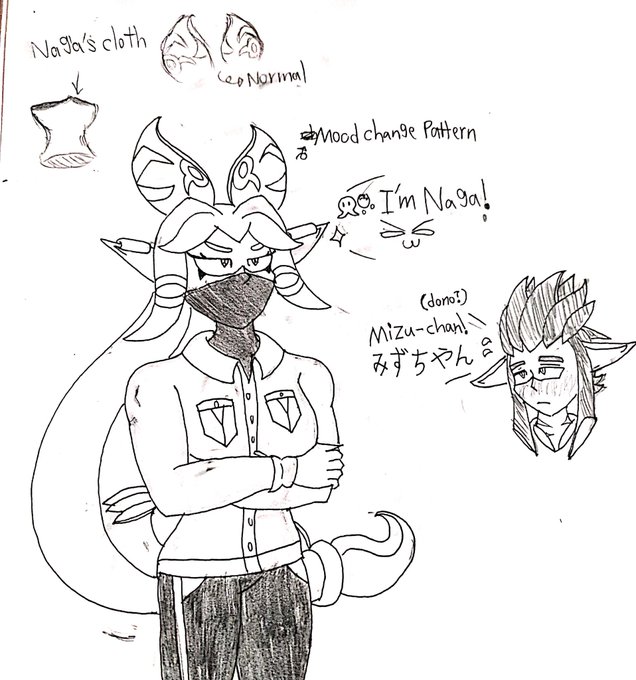 Naga's cloth
Normal
Mood change Pattern
I'm Naga!
(dono?)
Mizu-chan!
みずちやん